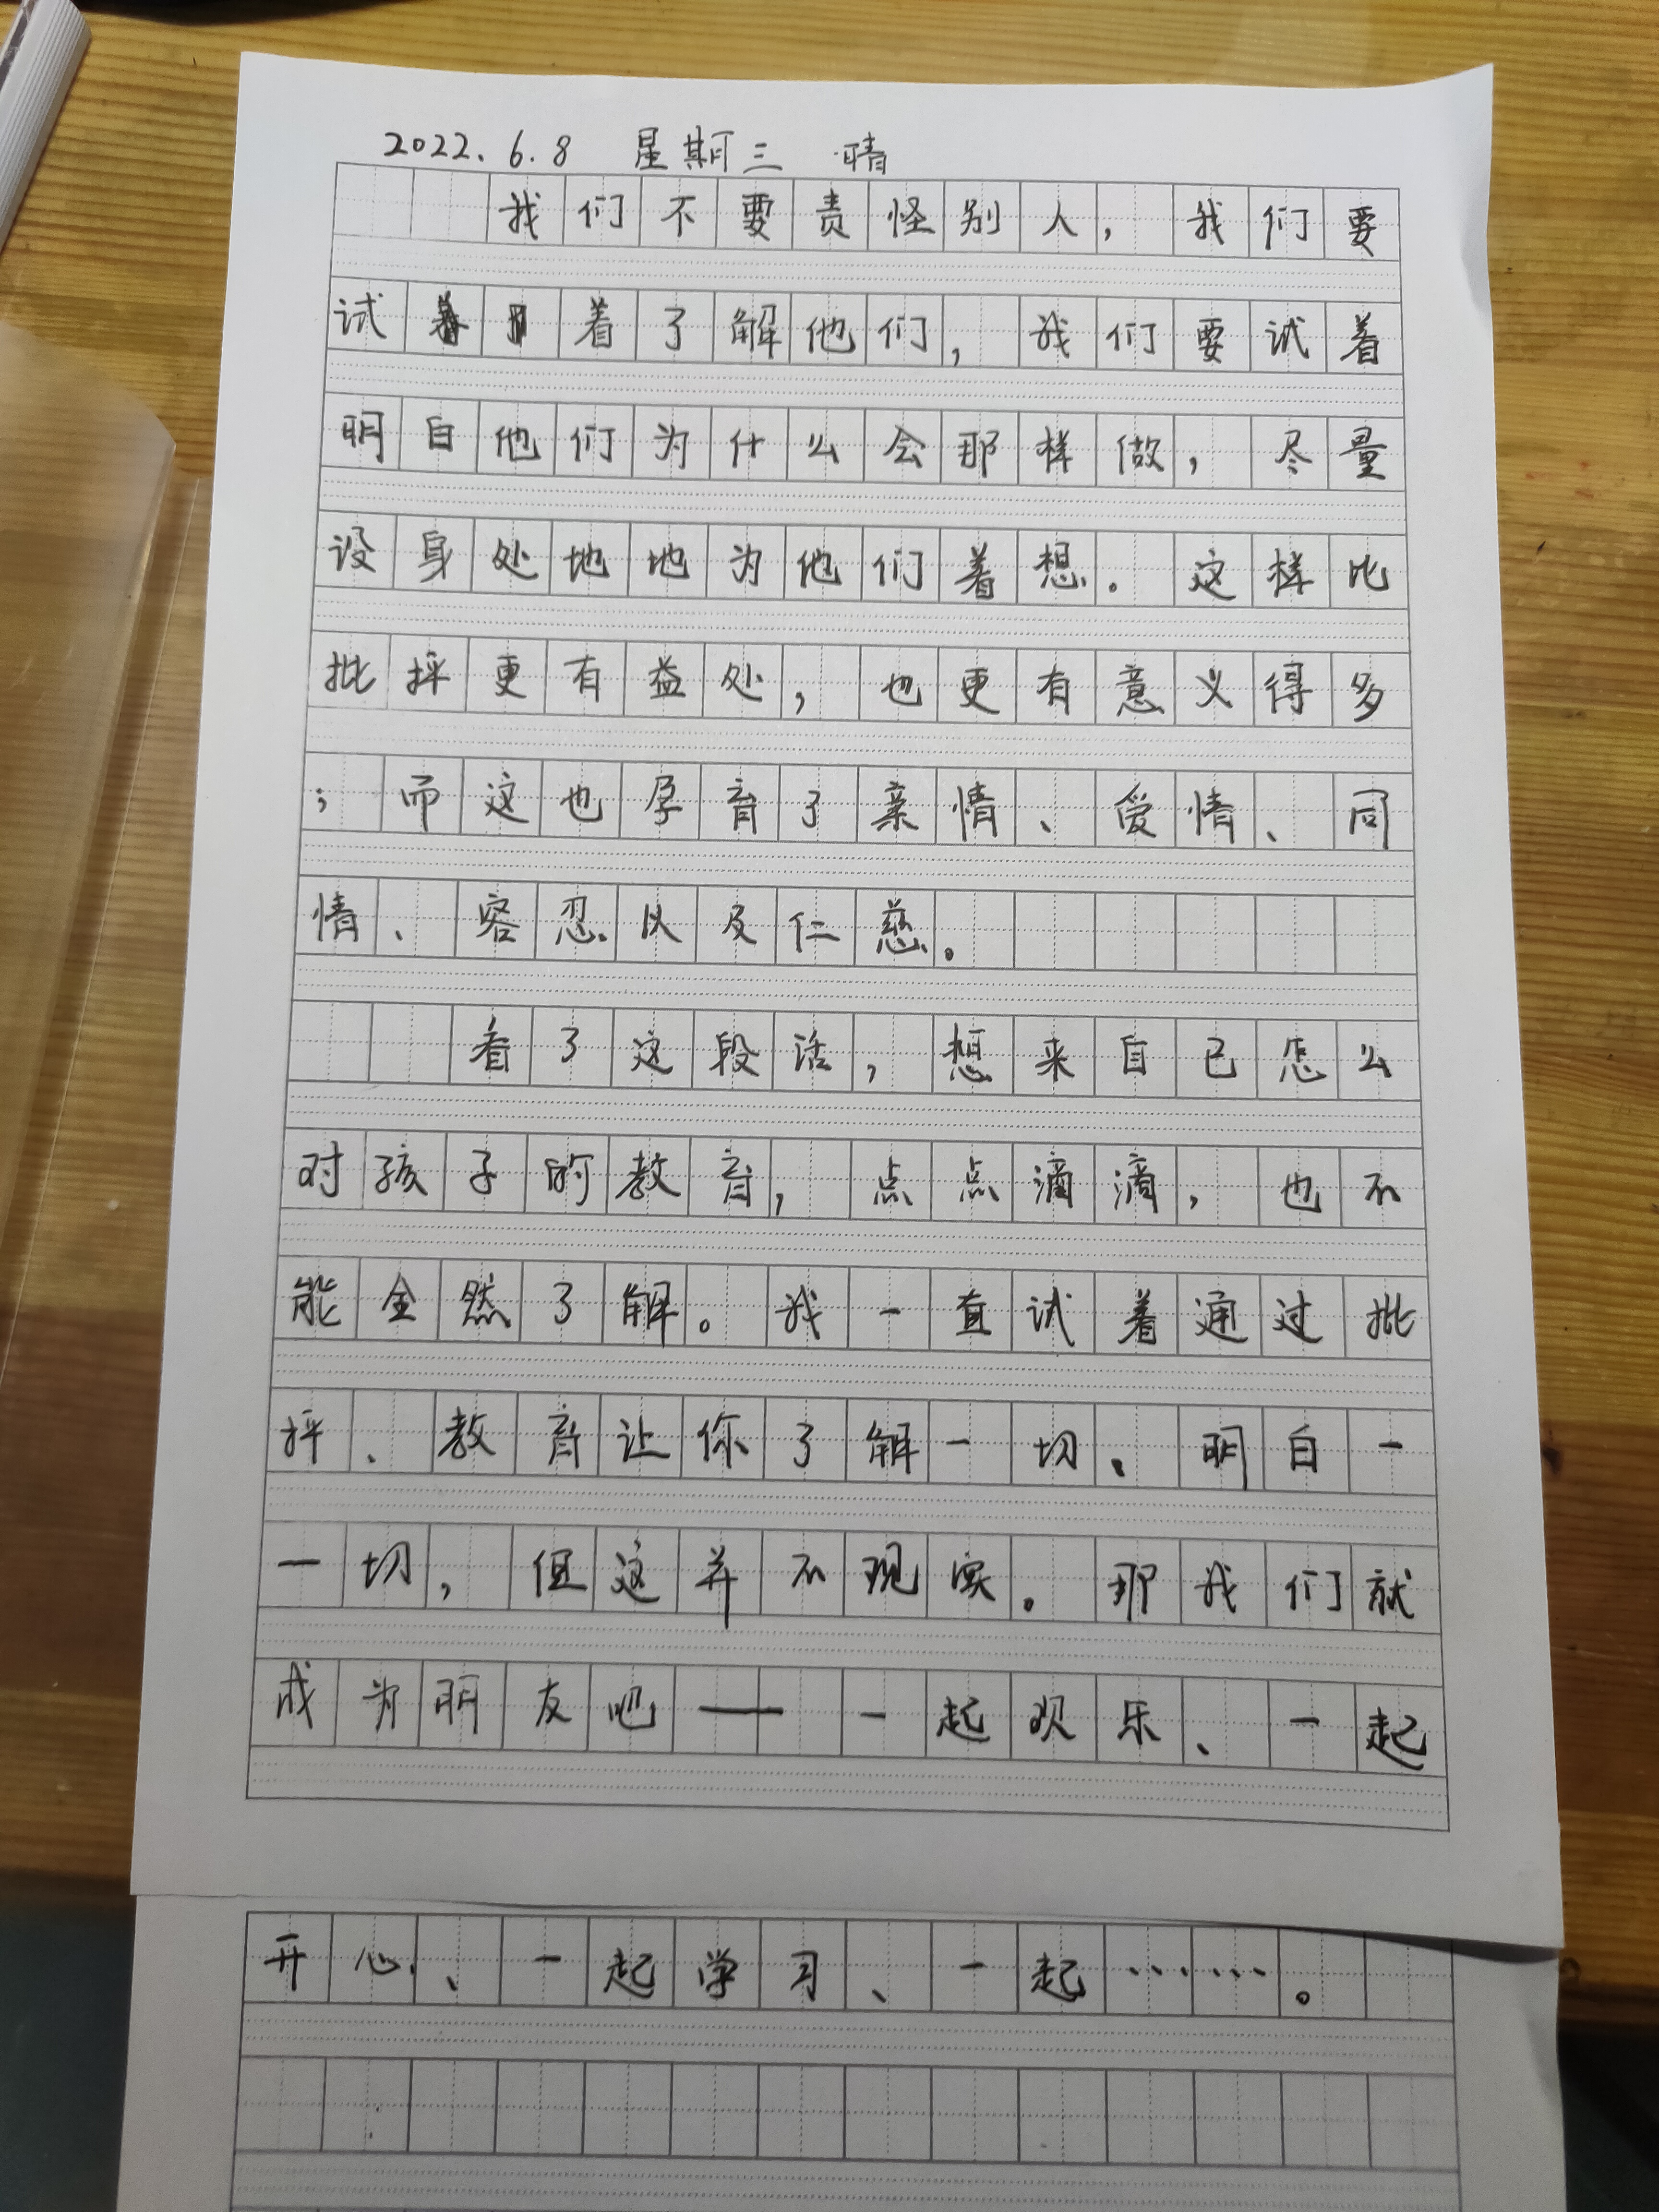 2022.6.8 星期三 晴
我们不要责怪别人，我们要
试着了解他们，我们要试着
明白他们为什么会那样做，尽量
设身处地地为他们着想。这样比
批抨更有益处，也更有意义得多
；而这也孕育了亲情、爱情、同
情、容忍以及仁慈。
看了这段话，想来自己怎么
对孩子的教育，点点滴滴，也不
能全然了解。我一直试着通过批
抨、教育让你了解一切、明白一
一切，但这并不现实。那我们就
成为朋友吧——一起欢乐、一起
开心、一起学习、一起……。